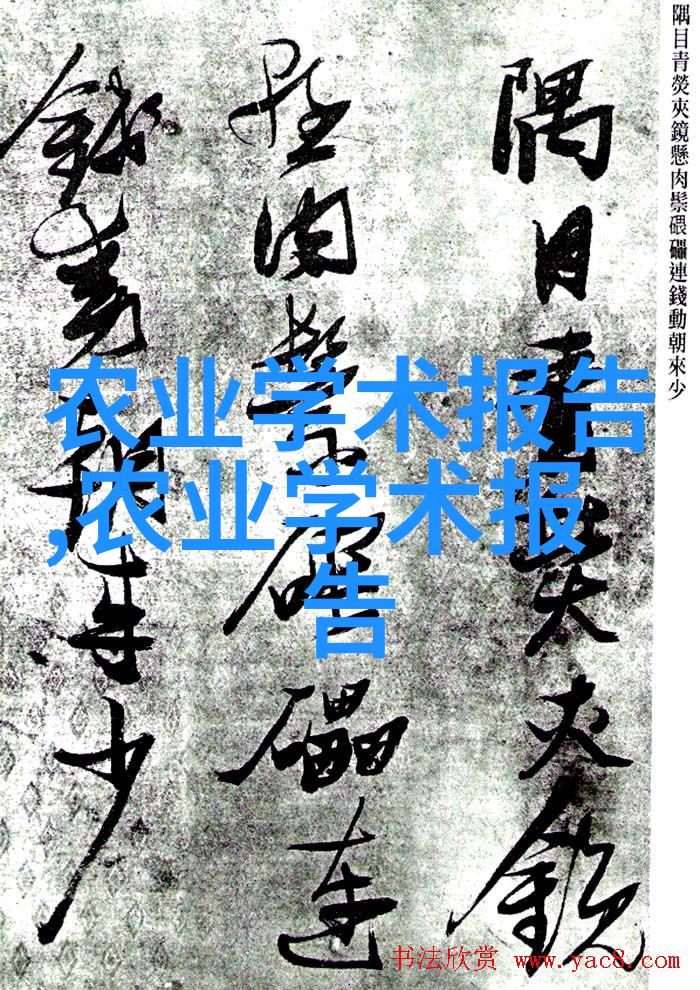 隅目青熒夾鏡懸肉鬃碨礧連錢動朝來少
隅目青熒夾鏡
懸肉鬃碨礧連
錢動朝來少
农业学术报告
,农业学术报
告
书法欣赏 www.yac8.com